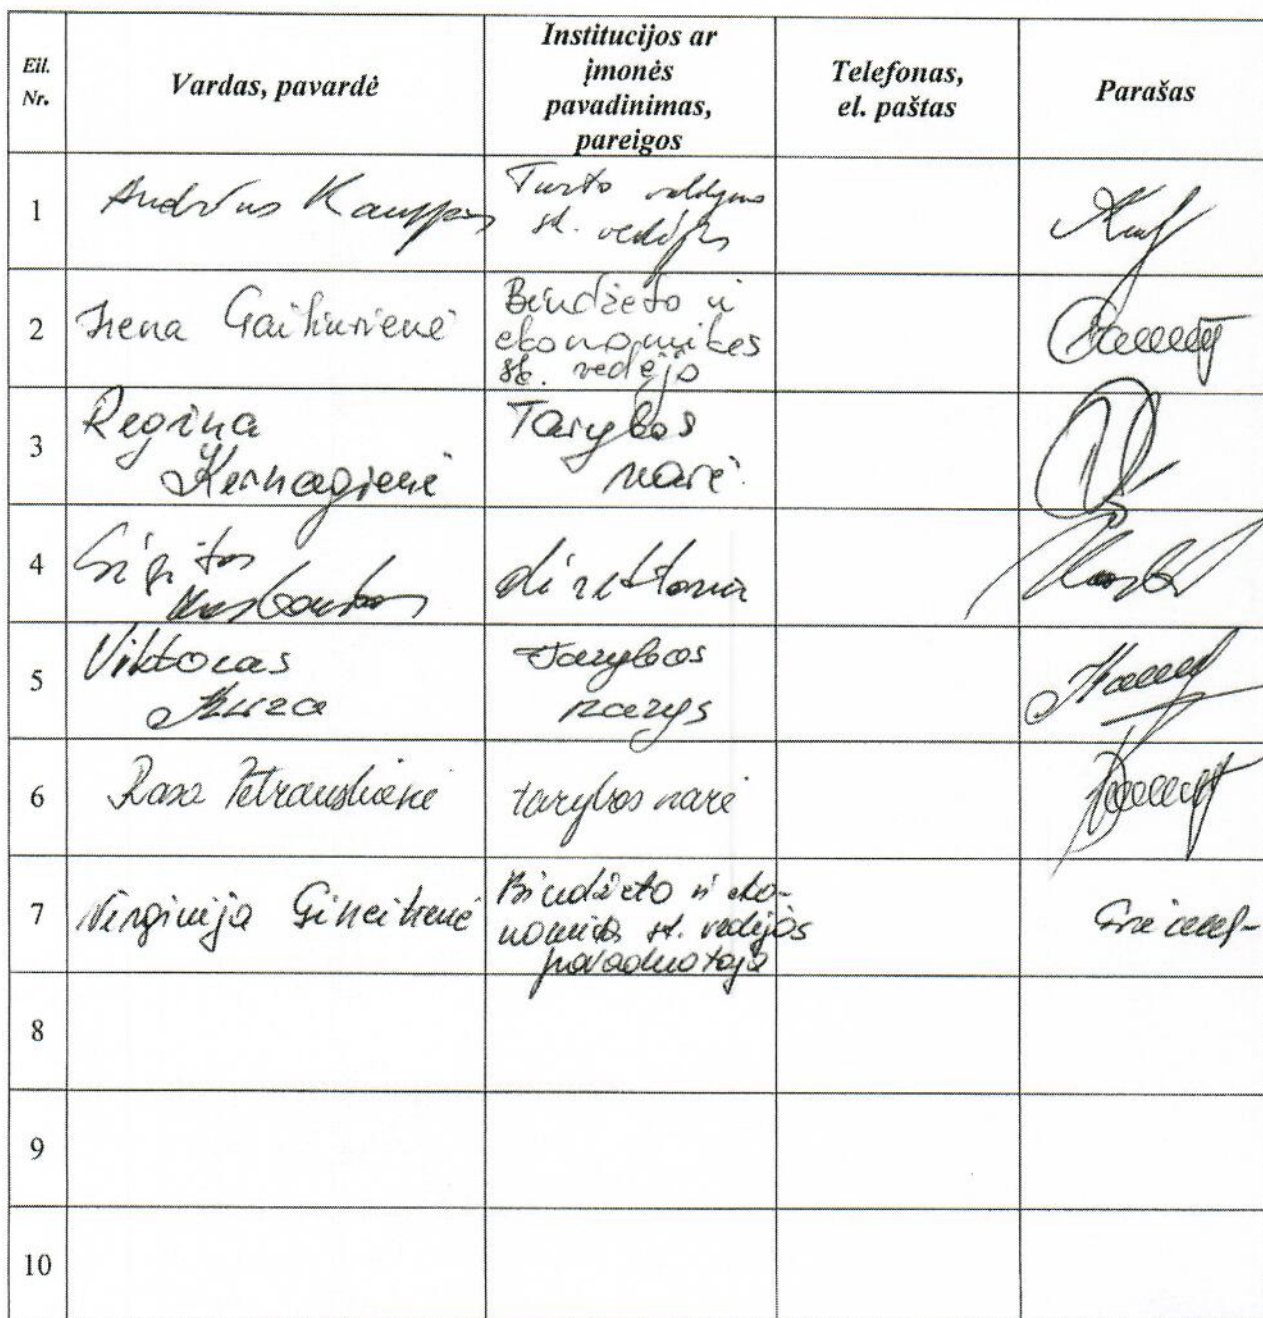 Eil. Nr.
Vardas, pavardė
Institucijos ar
įmonės
pavadinimas,
pareigos
Telefonas,
el. paštas
Parašas
1
Andrius
Turto valdymo
sk. vedėjas
2
Irena
Biudžeto ir
ekonomikos
sk. vedėja
3
Regina
Kernagienė
Tarybos
narė
4
Sigitas
direktorius
5
Viktoras
Tarybos
narys
6
Rasa Petrauskienė
tarybos narė
7
Virginija Gineitienė
Biudžeto ir eko-
nomikos sk. vedėjos
pavaduotoja
8
9
10